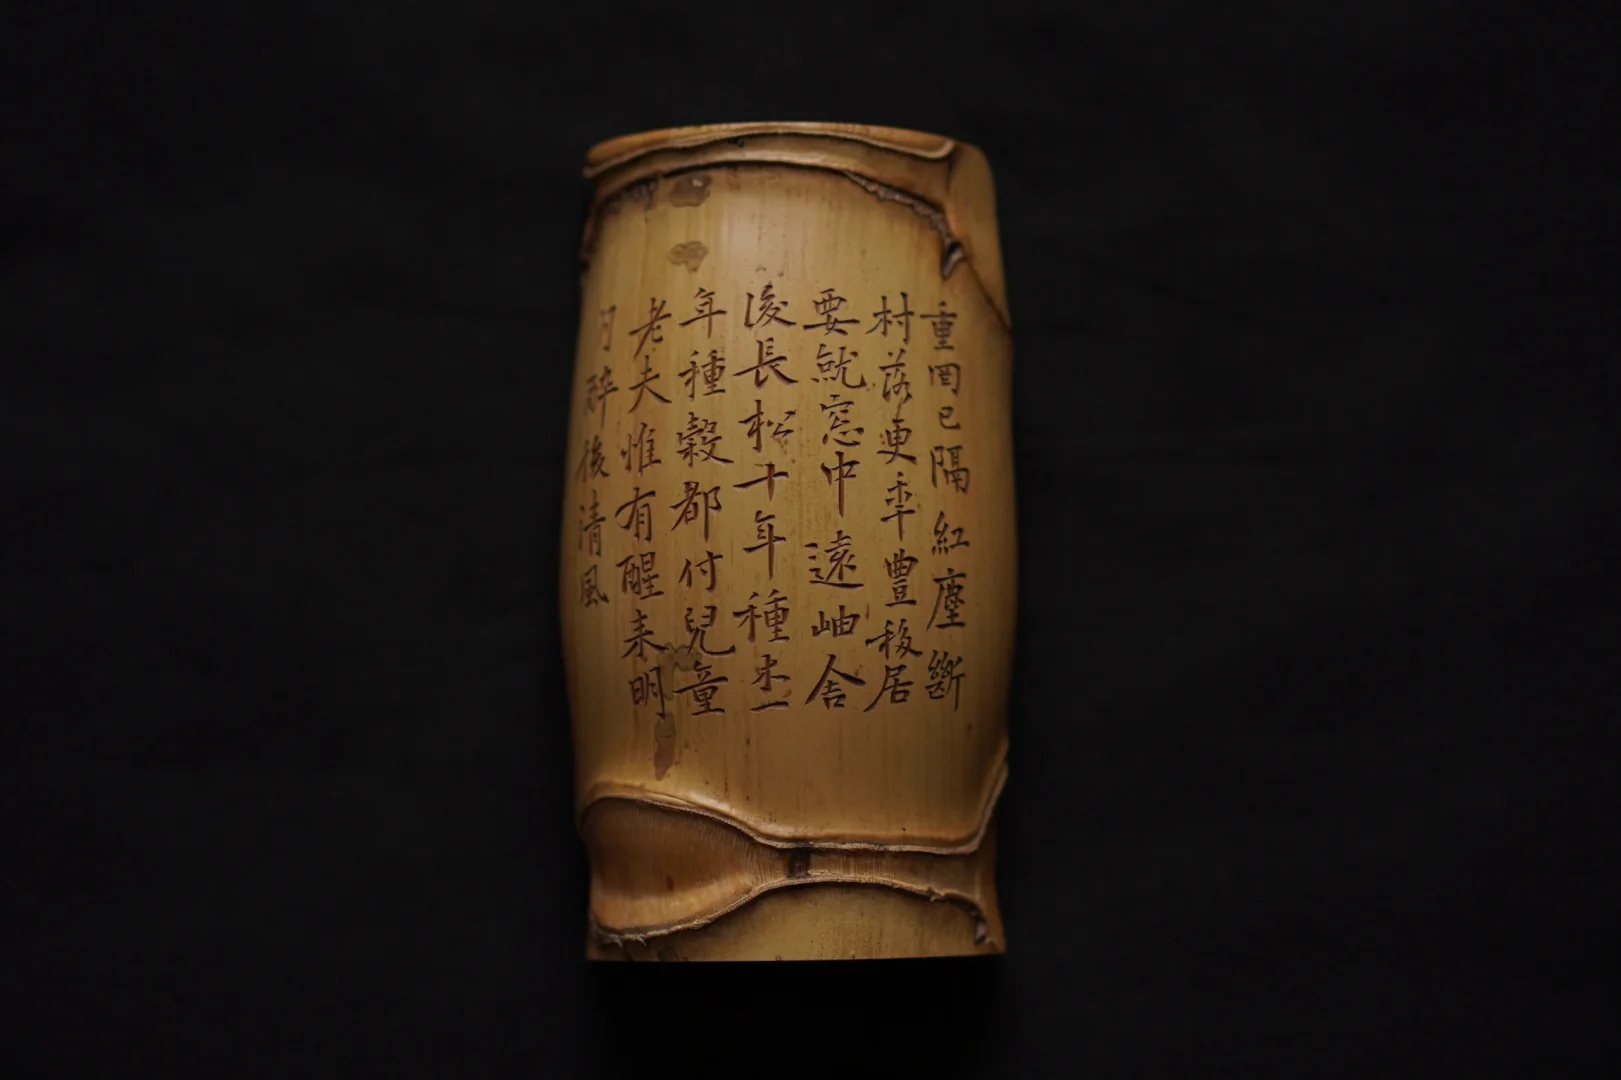 重岡已隔紅塵斷
村落更秊豐移居
要就窓中遠岫舍
後長松十年種木一
年種穀都付兒童
老夫惟有醒来明
月醉後清風